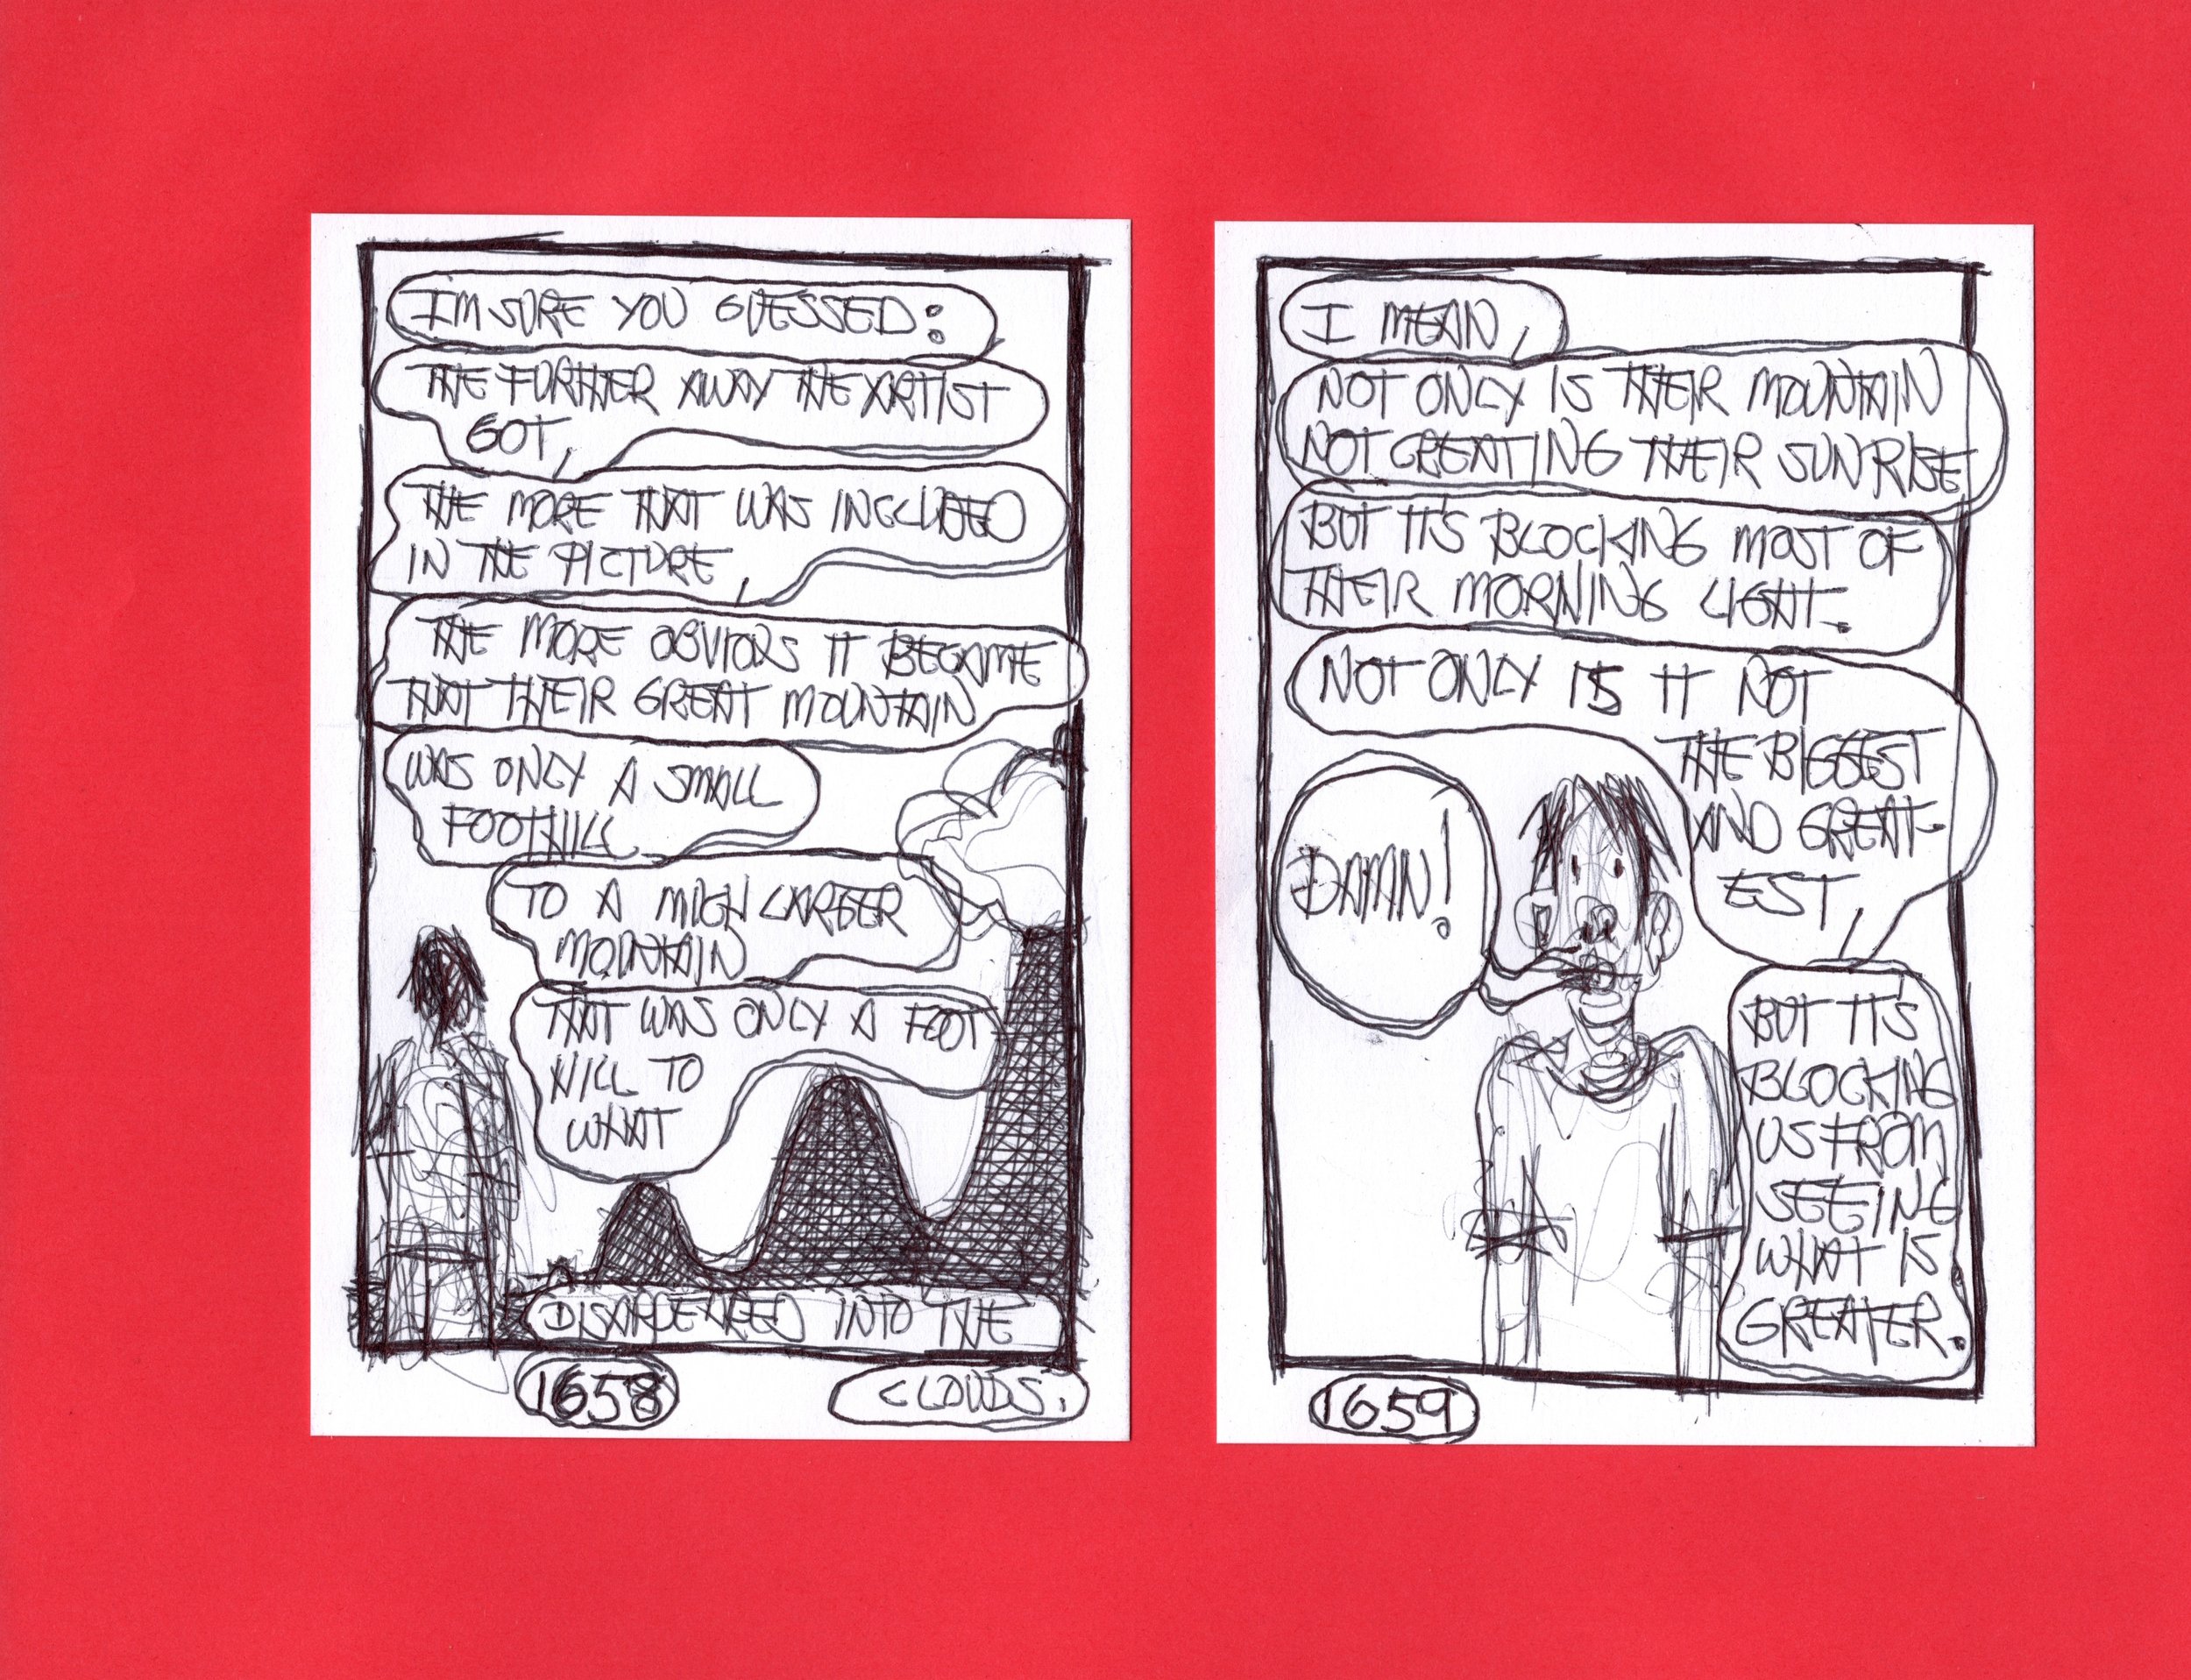 I'M SURE YOU GUESSED:
THE FURTHER AWAY THE ARTIST
GOT,
THE MORE THAT WAS INCLUDED
IN THE PICTURE,
THE MORE OBVIOUS IT BECAME
THAT THEIR GREAT MOUNTAIN
WAS ONLY A SMALL
FOOTHILL
TO A MUCH LARGER
MOUNTAIN
THAT WAS ONLY A FOOT
HILL TO
WHAT
DISAPPEARED INTO THE
CLOUDS.
1658
I MEAN,
NOT ONLY IS THEIR MOUNTAIN
NOT CREATING THEIR SUNRISE
BUT IT'S BLOCKING MOST OF
THEIR MORNING LIGHT.
NOT ONLY IS IT NOT
THE BIGGEST
AND GREAT-
EST,
BUT IT'S
BLOCKING
US FROM
SEEING
WHAT IS
GREATER.
DAMN!
1659